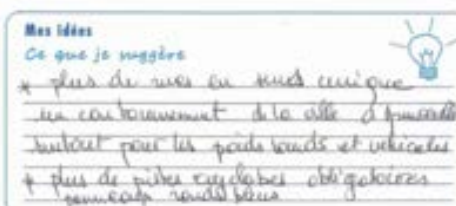 Mes idées
Ce que je suggère
* plus de rues en sens unique
un contournement de la ville
surtout pour les poids lourds et véhicules
* plus de pistes cyclables obligatoires
nouveaux ronds points